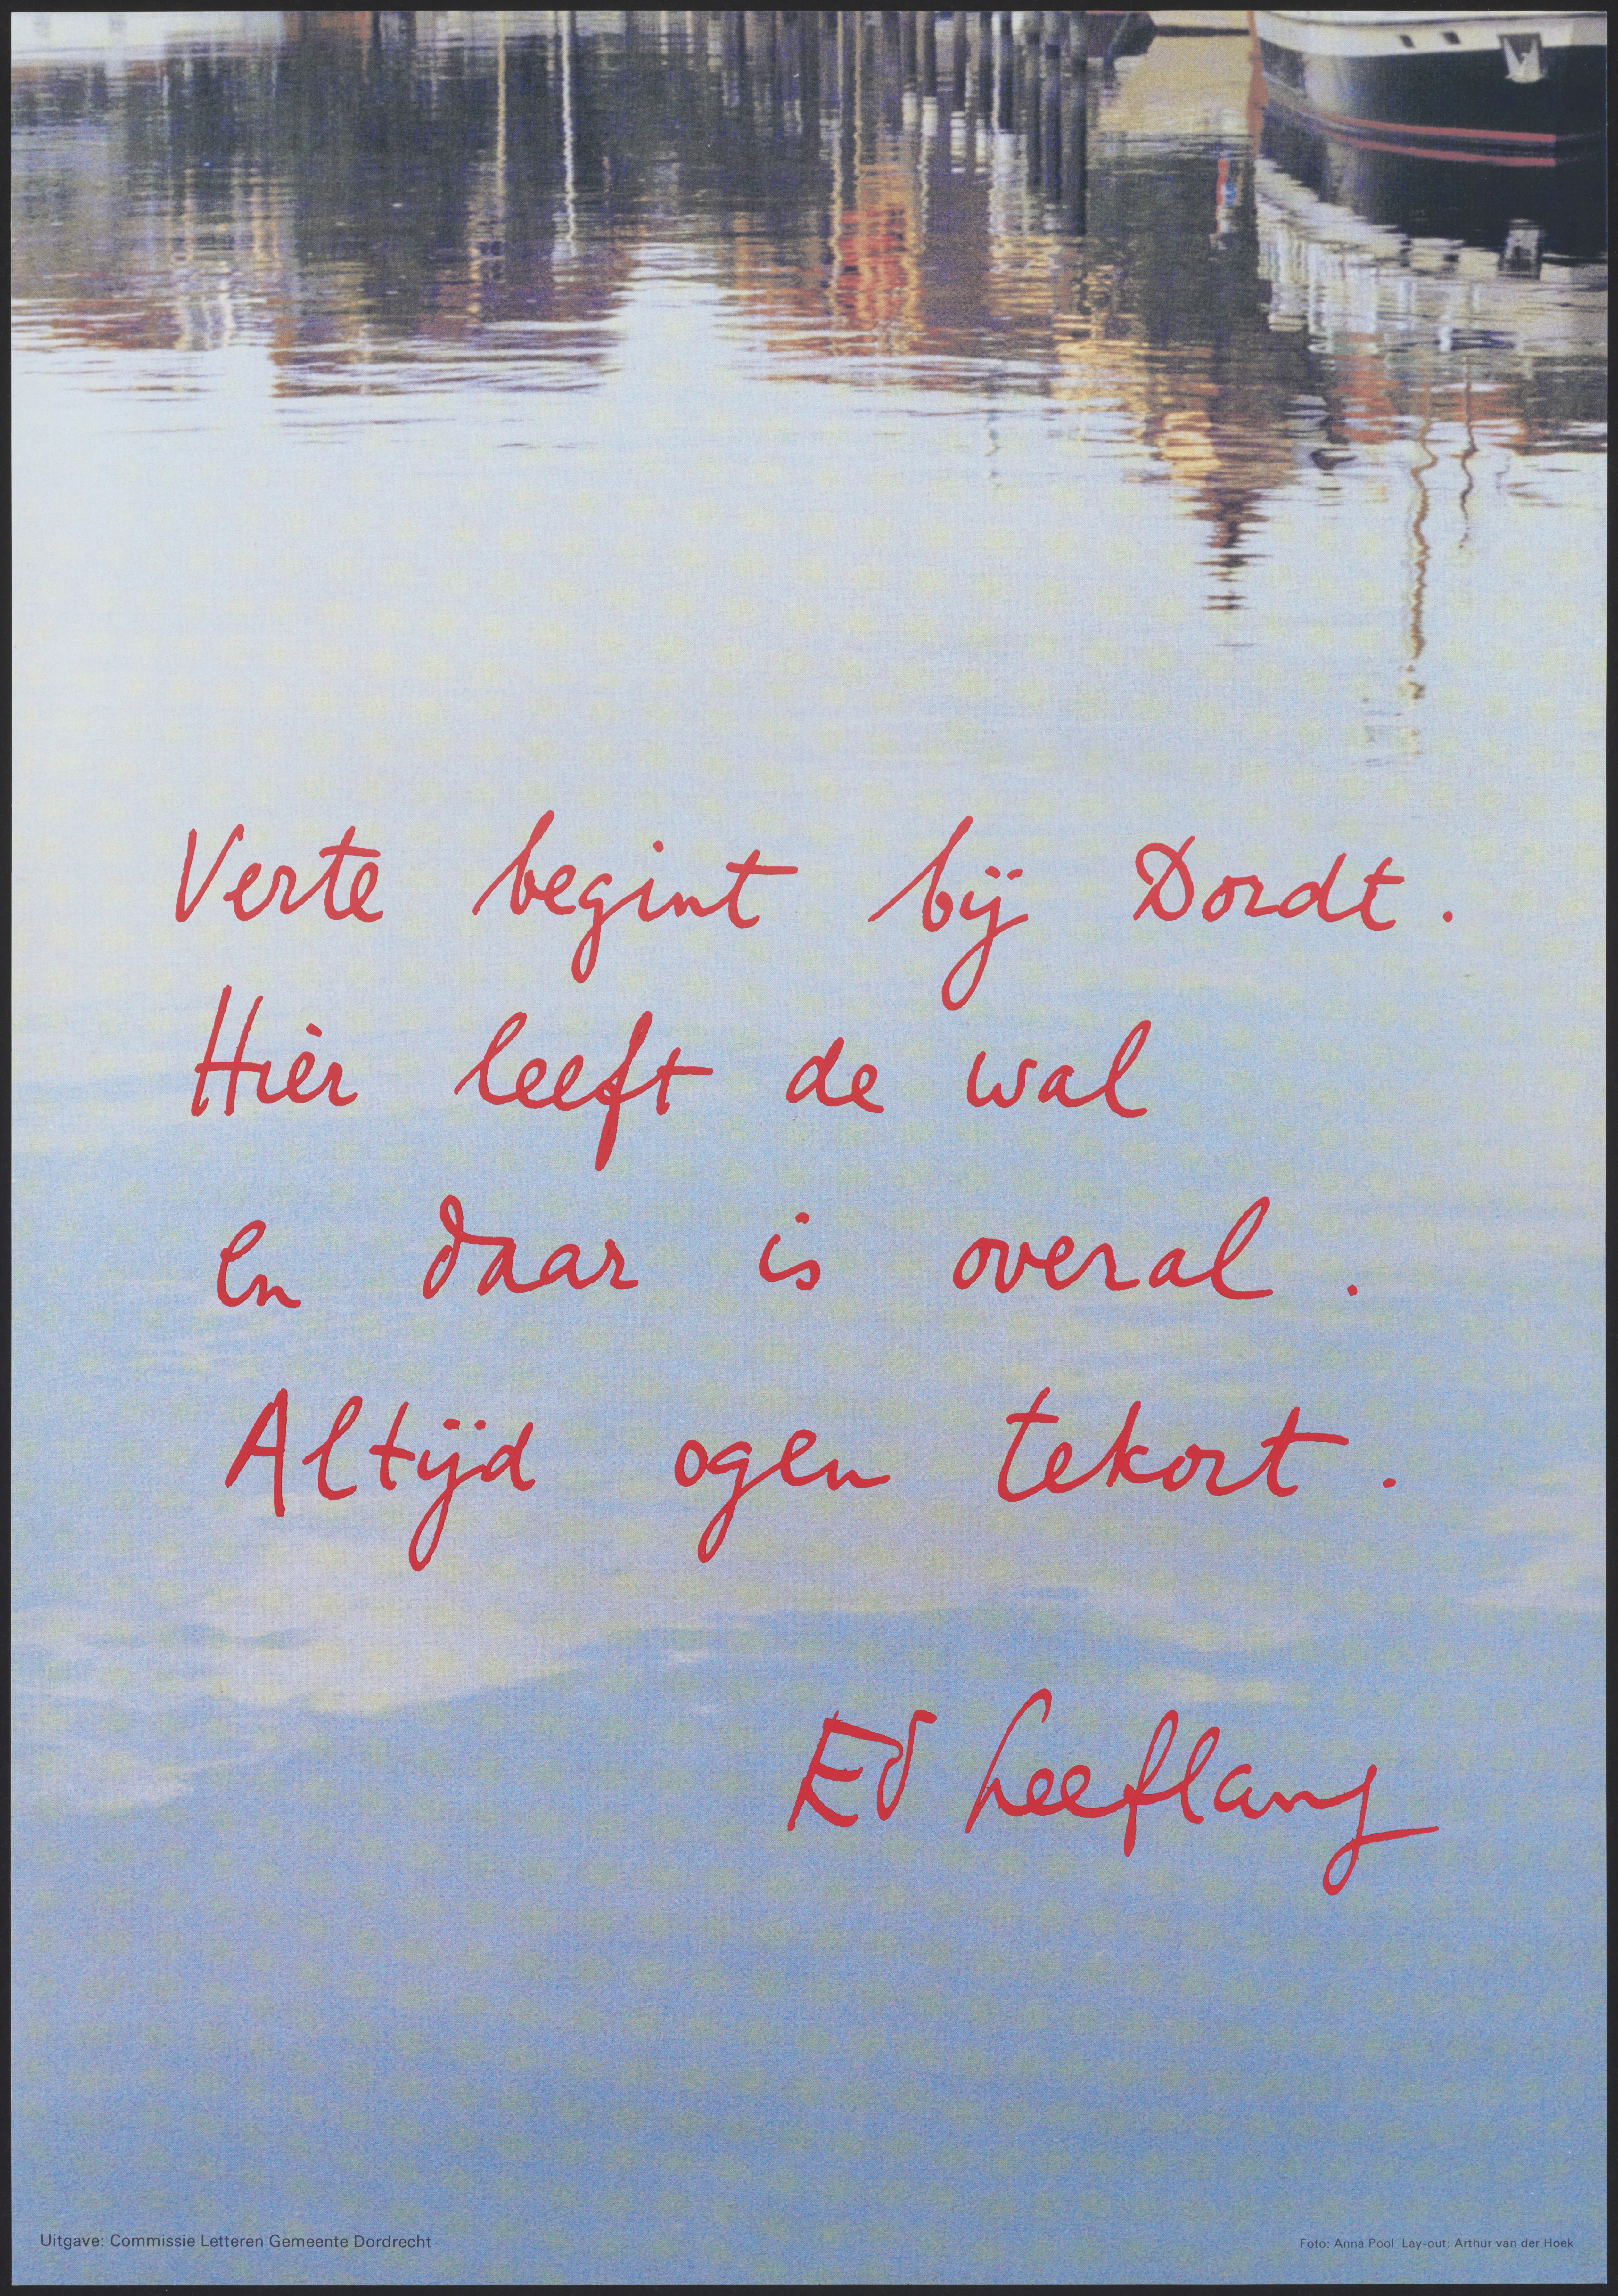 Verte begint bij Dordt.
Hièr leeft de wal
en daar is overal.
Altijd ogen tekort.
Ed Leeflang
Uitgave: Commissie Letteren Gemeente Dordrecht
Foto: Anna Pool Lay-out: Arthur van der Hoek